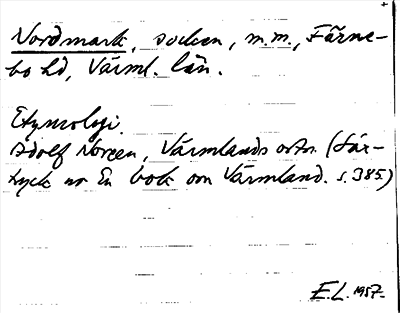 Nordmark, socken, m.m., Färne-
bo hd, Värml. län.
Etymologi.
Adolf Noreen, Värmlands ortn. (Sär-
tryck ur En bok om Värmland. s. 385.)
E.L. 1957.